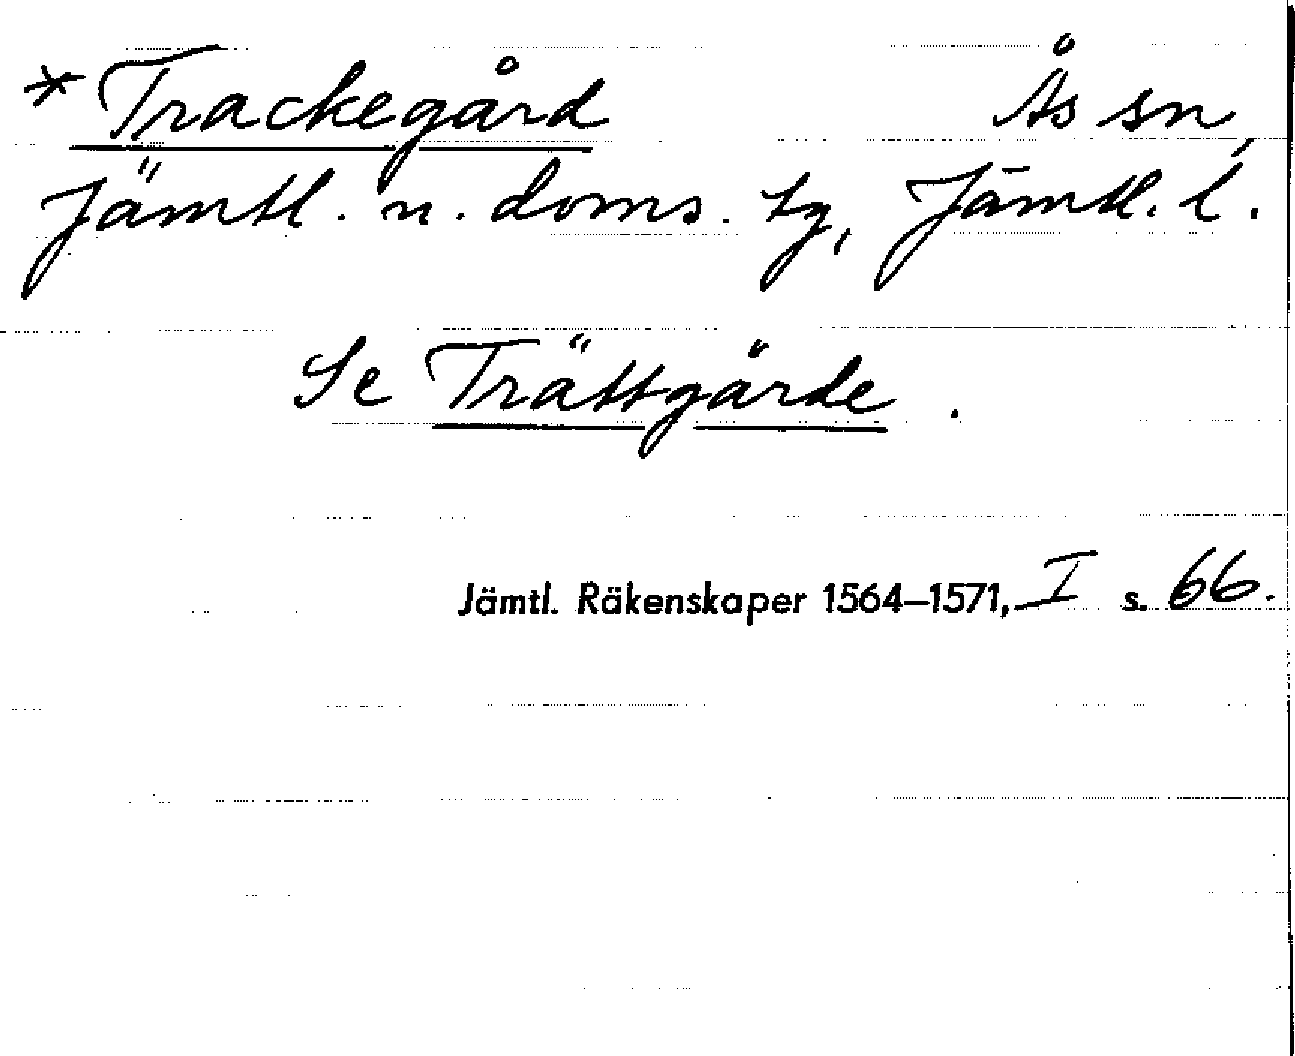 * Trackegård Ås sn,
Jämtl. n. doms. tg, Jämtl. l.
Se Trättgärde.
Jämtl. Räkenskaper 1564–1571, I s. 66.